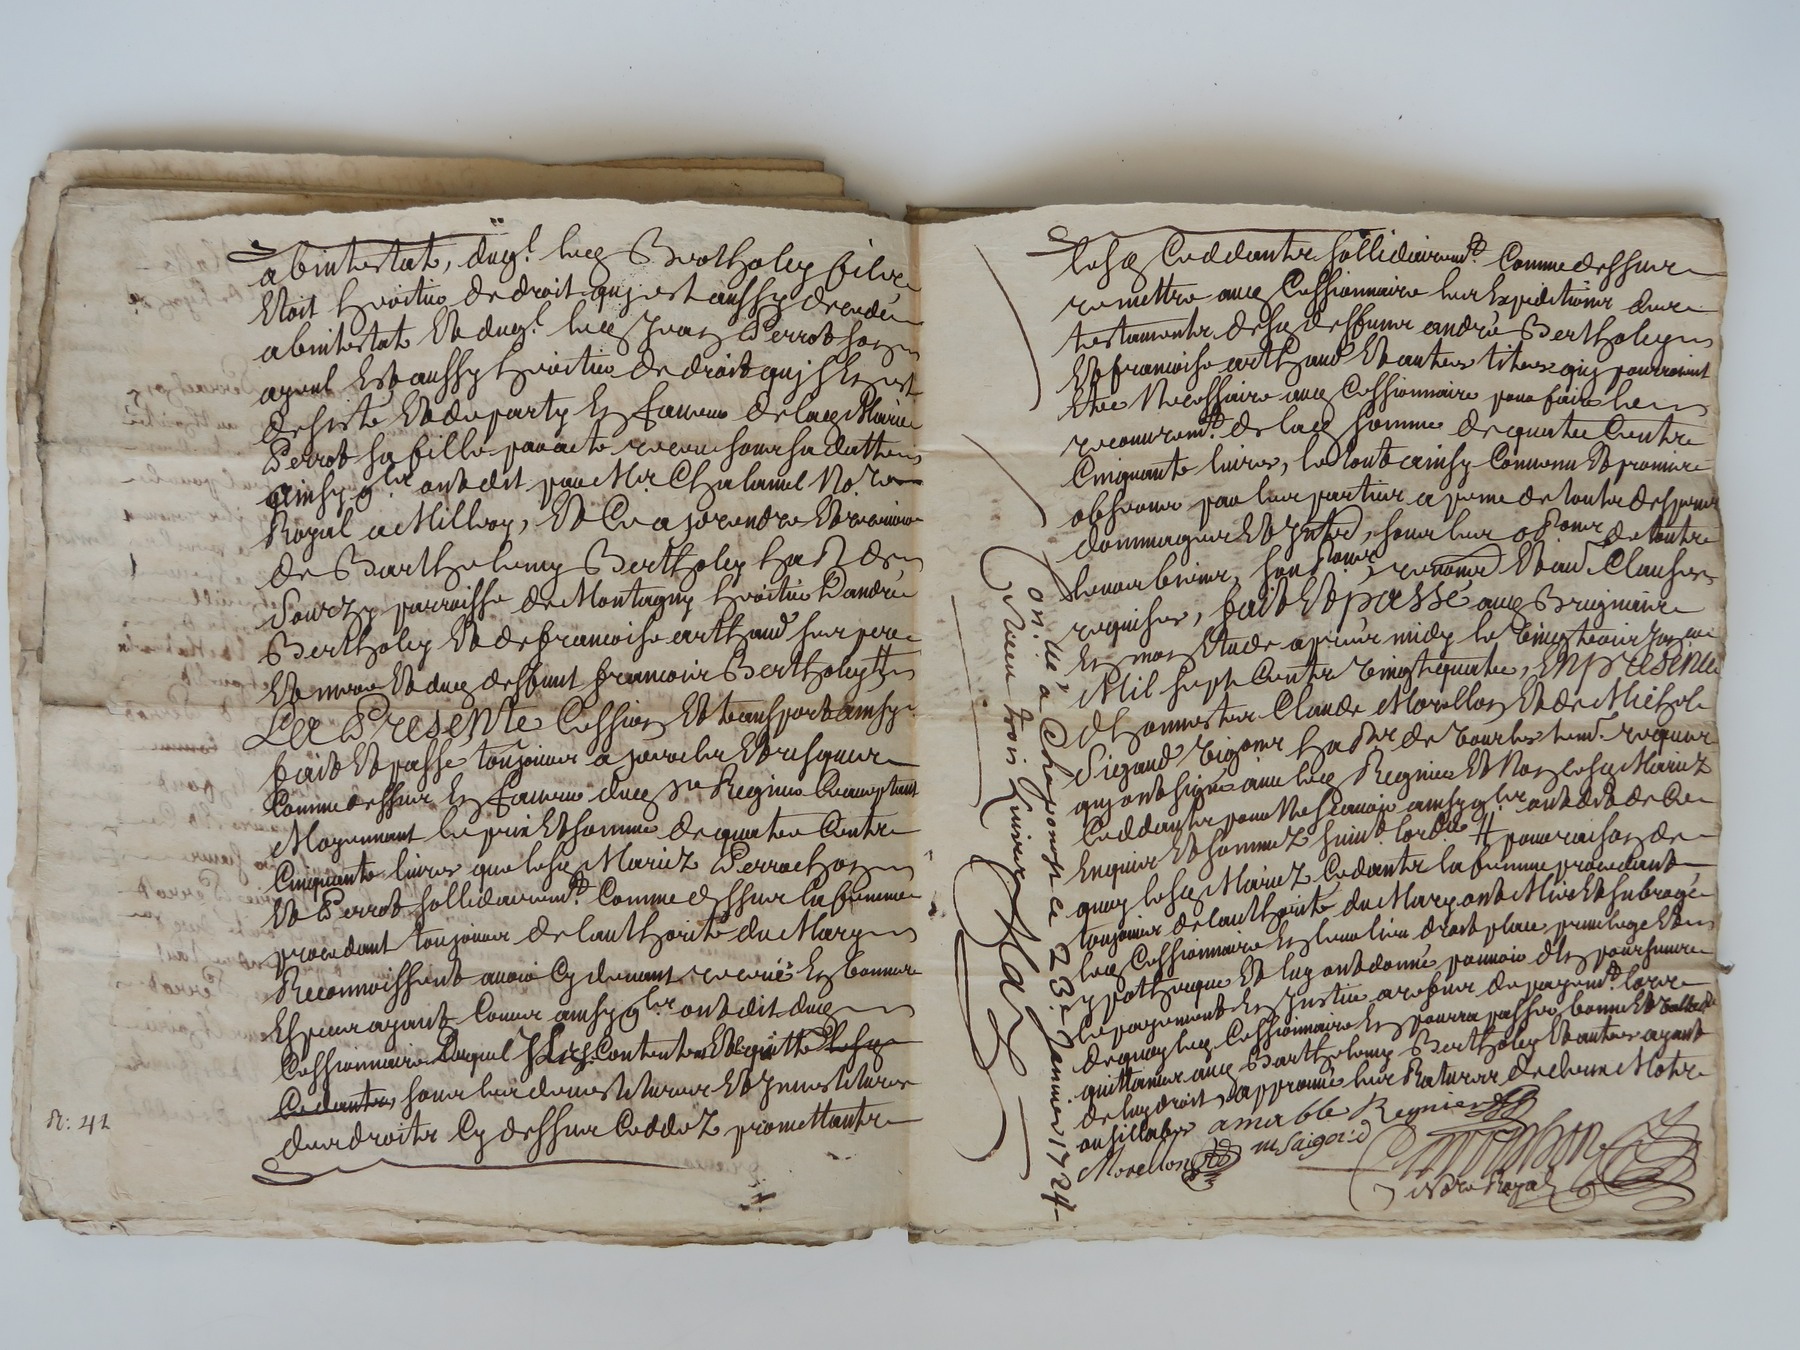 abintestat, duql. lucq Bertholey filz
Etoit heritier de droit quj est aussy decedé
abintestat Et duql. lucq Jean Perrot son
ayeul Est aussy heritier de droit quj s'En est
desisté Et departy En faveur de lacq Marie
Perrot sa fille par acte receu sous sa datte
ainsy ql. ont dit par Me. Chalamel No.re
Royal a Millery, Et Ce a prendre Et recevoir
de Barthelemy Bertholey ha.nt de
Sourzy parroisse de Montagny heritier D'andré
Bertholey Et de francoise arthaud ses pere
Et mere Et ducq deffunt francois Bertholey
La Presente Cession Et transport ainsy
fait Et passé toujours a perils Et risques
Comme dessus En faveur ducq sr Regnier Acceptant
Moyennant le prix Et somme de quatre Cents
Cinquante livres que lesq Mariez Perrachon
Et Perrot sollidairemt. Comme dessus la femme
procedant toujours de lauthorité du Mary
Reconnoissent avoir Cy devant receüe En bonnes
Especes ayant Cours ainsy qls. ont dit ducq
Cessionnaire Duquel Ils s. Contentent Et quitte lesq
Cedantes, sous les devestitures Et Investitures
des droits Cy dessus Ceddez promettants
N: 42
lesq Ceddants sollidairemt. Comme dessus
remettre aucq Cessionnaire les Expeditions des
testaments desq deffuns andré Bertholey
Et francoise arthaud Et autres titres quj pourroient
Etre Necessaire aucq Cessionnaire pour faire le
recouvremt. de lacq somme de quatre Cents
Cinquante livres, le tout ainsy Convenu Et promis
observer par les parties a peine de toutes despens
dommages Et Interes, sous les ob.ons de toutes
leurs biens, renons Et aud Clauses
requises, fait Et passé aucq Brignais
En mon Etude apres midy le vingt trois Janvier
Mil sept Cents vingt quatre, En presence
d'honnestes Claude Morellon Et de Michel
Sigaud vigons ha.nt de Vourles tem. requis
quj ont signé avec lecq Regnier Et Non lesq Mariez
Ceddants pour Ne scavoir ainsy qls. ont dit de Ce
Enquis Et sommez suivt. lord.ce # pour raison de
quoy lesq Mariez Cedants la femme procedant
toujours de lauthorité du Mary ont Mis Et subrogé
lecq Cessionnaire En leur lieu droit place privilege Et
ypotheque Et luy ont donné pouvoir d'En poursuivre
le payement En Justice a reffus de payemt. lors
dequoy lecq Cessionnaire En pourra passer bonne Et vallable
quittance aucq Barthelemy Bertholey Et autres ayant
de luy droit, approuvé les Ratures de deux Mots
ou sillabes amable Regnier
Morellon m Saigod
No.re Royal
Con.lé a Chaponost ce 23e. Janvier 1724
Receu trois Livres